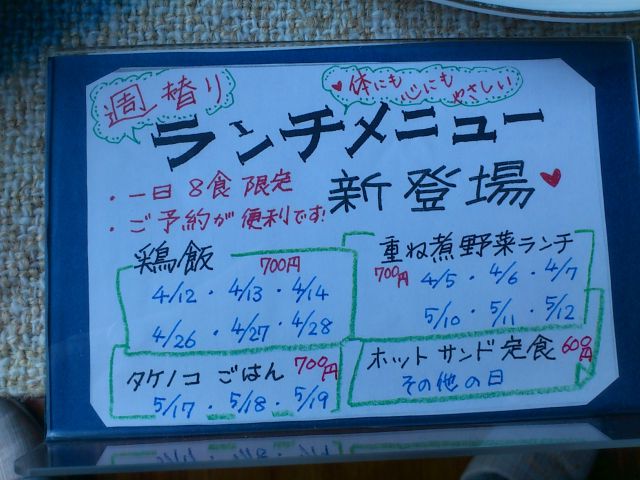 週替り
♥体にも心にもやさしい
ランチメニュー
新登場♥
・一日8食限定
・ご予約が便利です!
鶏飯 700円
4/12・4/13・4/14
4/26・4/27・4/28
重ね煮野菜ランチ
700円 4/5・4/6・4/7
5/10・5/11・5/12
タケノコごはん 700円
5/17・5/18・5/19
ホットサンド定食 600円
その他の日